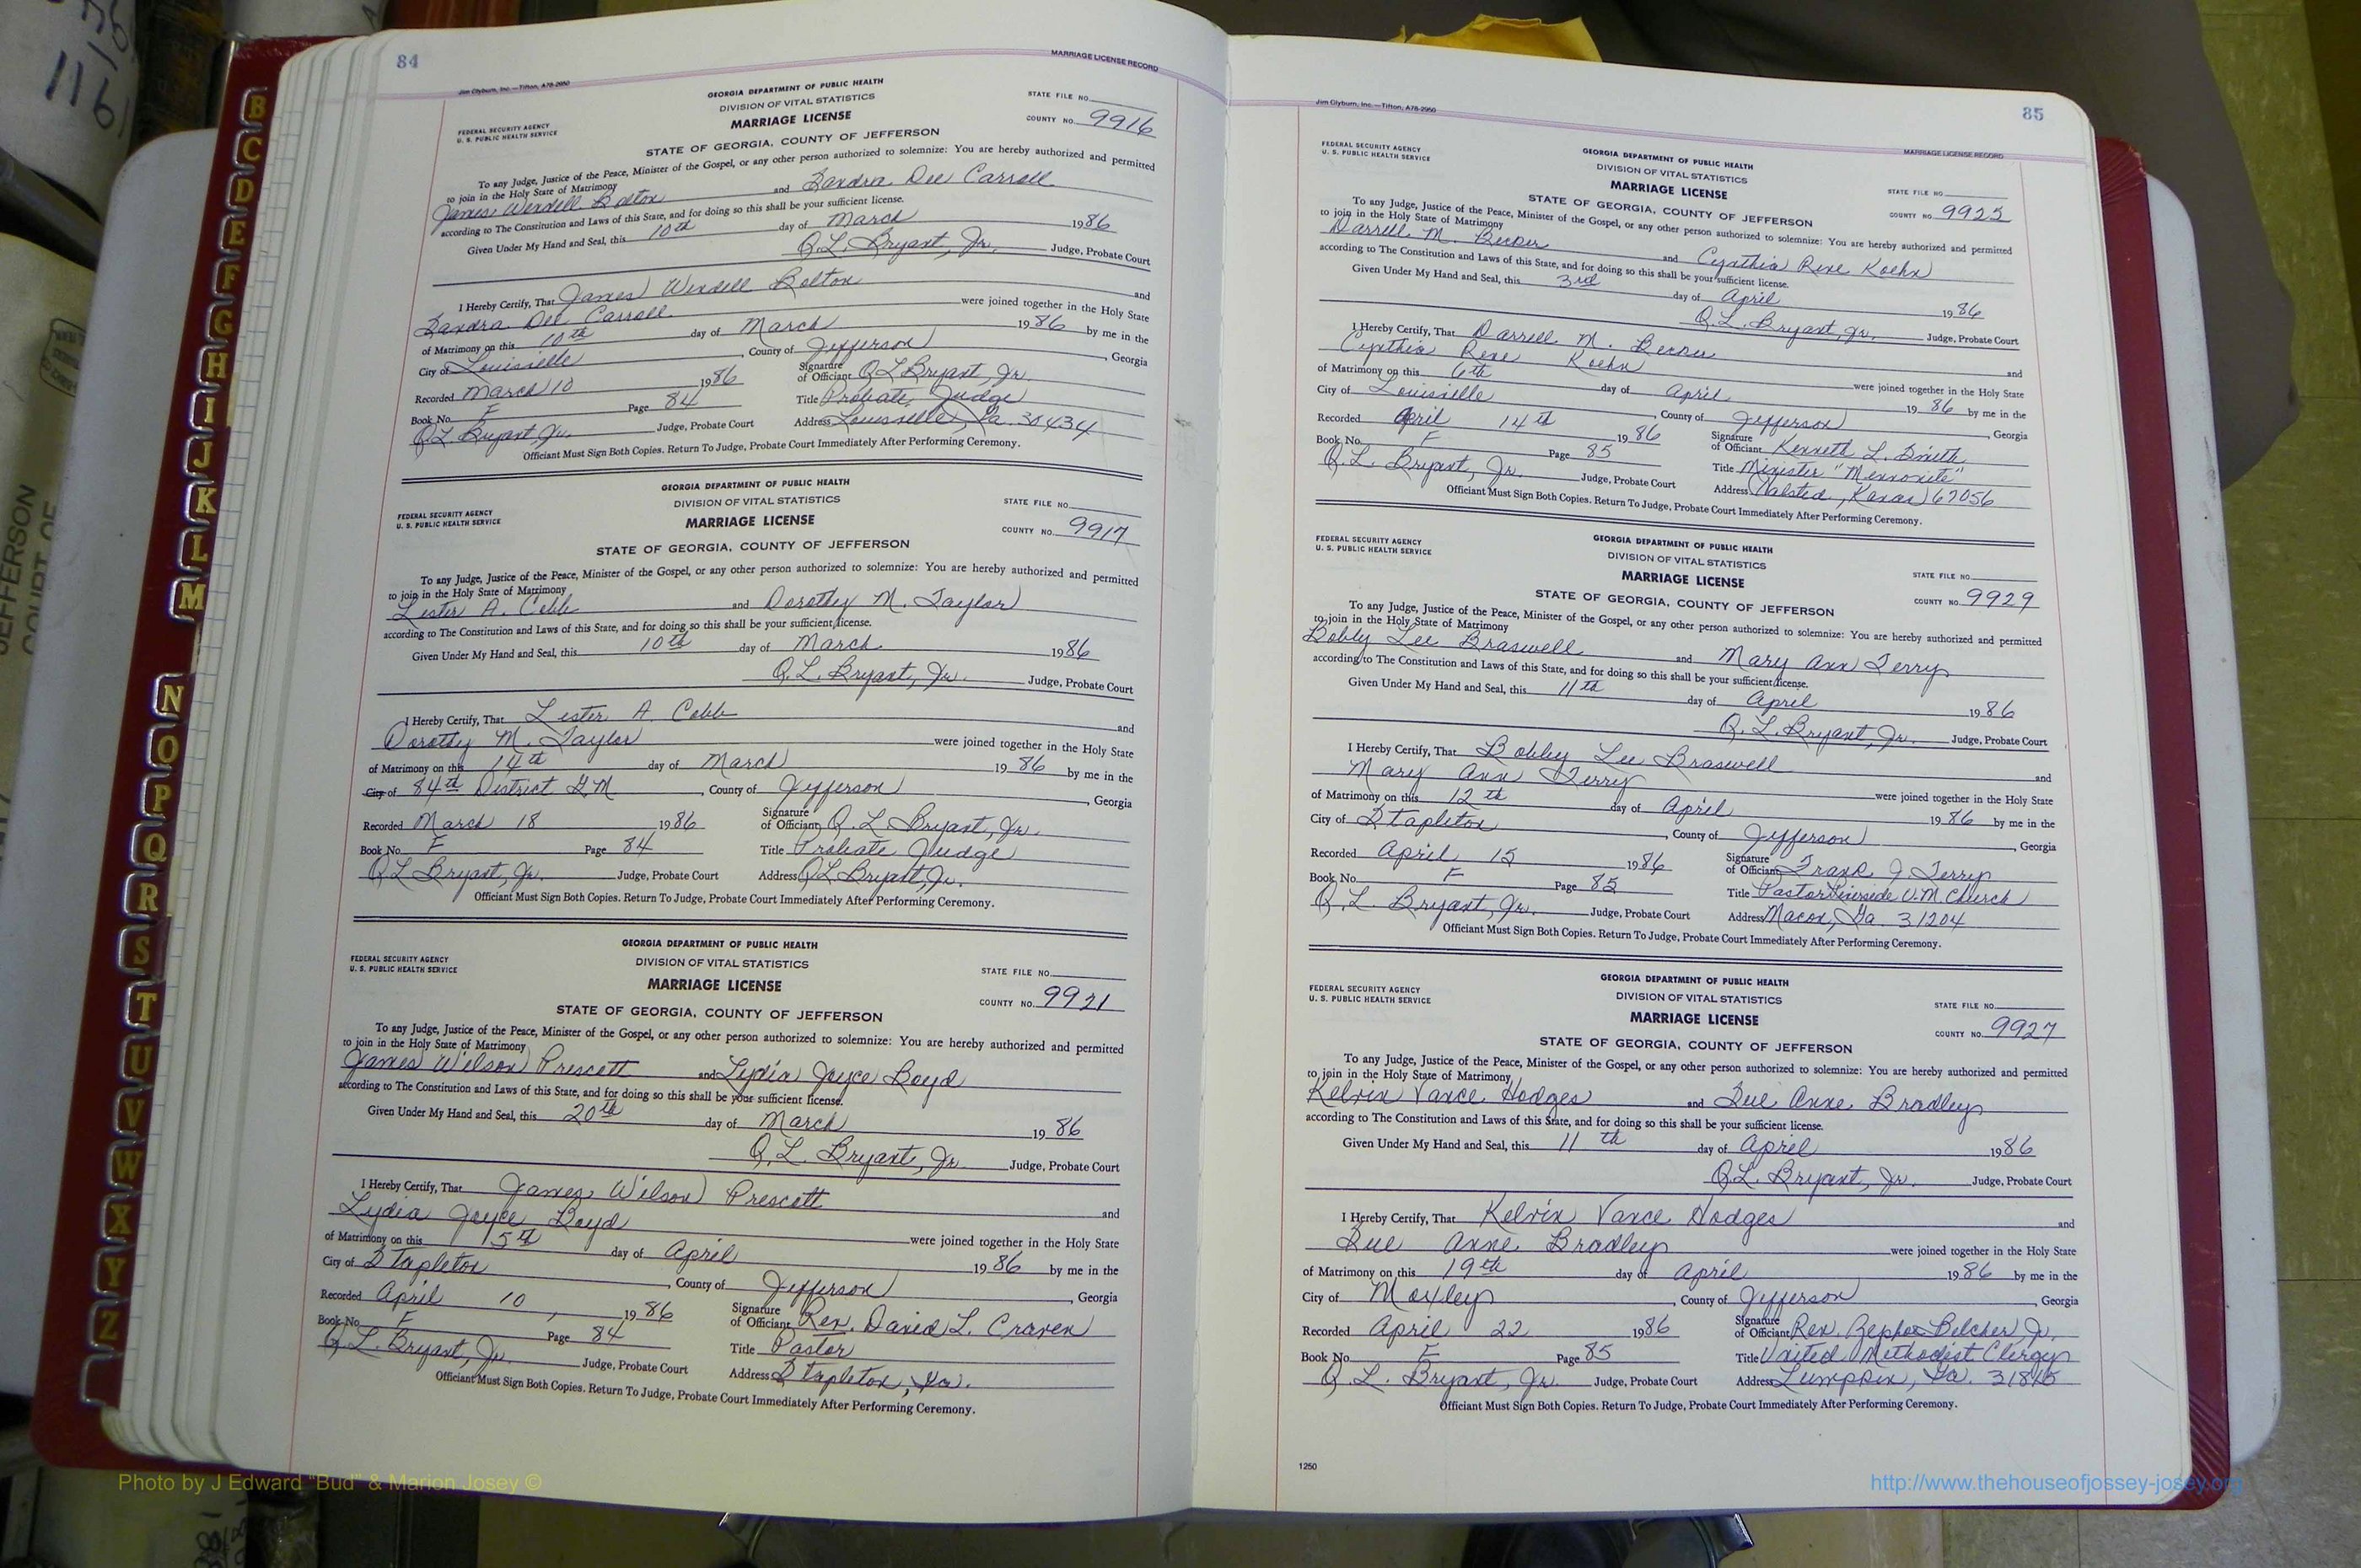 84
MARRIAGE LICENSE RECORD
Jim Clyburn, Inc.—Tifton, A78-2950
GEORGIA DEPARTMENT OF PUBLIC HEALTH
DIVISION OF VITAL STATISTICS
MARRIAGE LICENSE
FEDERAL SECURITY AGENCY
U. S. PUBLIC HEALTH SERVICE
STATE FILE NO.
COUNTY NO. 9916
STATE OF GEORGIA, COUNTY OF JEFFERSON
To any Judge, Justice of the Peace, Minister of the Gospel, or any other person authorized to solemnize: You are hereby authorized and permitted
to join in the Holy State of Matrimony
James Wendell Bolton and Sandra Dee Carroll
according to The Constitution and Laws of this State, and for doing so this shall be your sufficient license.
Given Under My Hand and Seal, this 10th day of March 1986
Q.L. Bryant, Jr. Judge, Probate Court
I Hereby Certify, That James Wendell Bolton and
Sandra Dee Carroll were joined together in the Holy State
of Matrimony on this 10th day of March 1986 by me in the
City of Louisville, County of Jefferson, Georgia
Recorded March 10 1986 Signature of Officiant Q L Bryant, Jr.
Book No. F Page 84 Title Probate Judge
Q L Bryant Jr. Judge, Probate Court Address Louisville, Ga. 30434
Officiant Must Sign Both Copies. Return To Judge, Probate Court Immediately After Performing Ceremony.
GEORGIA DEPARTMENT OF PUBLIC HEALTH
DIVISION OF VITAL STATISTICS
MARRIAGE LICENSE
FEDERAL SECURITY AGENCY
U. S. PUBLIC HEALTH SERVICE
STATE FILE NO.
COUNTY NO. 9917
STATE OF GEORGIA, COUNTY OF JEFFERSON
To any Judge, Justice of the Peace, Minister of the Gospel, or any other person authorized to solemnize: You are hereby authorized and permitted
to join in the Holy State of Matrimony
Lester A. Cobb and Dorothy M. Taylor
according to The Constitution and Laws of this State, and for doing so this shall be your sufficient license.
Given Under My Hand and Seal, this 10th day of March 1986
Q.L. Bryant, Jr. Judge, Probate Court
I Hereby Certify, That Lester A. Cobb and
Dorothy M. Taylor were joined together in the Holy State
of Matrimony on this 14th day of March 1986 by me in the
City of 84th District G M, County of Jefferson, Georgia
Recorded March 18 1986 Signature of Officiant Q. L Bryant, Jr.
Book No. F Page 84 Title Probate Judge
Q L Bryant, Jr. Judge, Probate Court Address Q L Bryant, Jr.
Officiant Must Sign Both Copies. Return To Judge, Probate Court Immediately After Performing Ceremony.
GEORGIA DEPARTMENT OF PUBLIC HEALTH
DIVISION OF VITAL STATISTICS
MARRIAGE LICENSE
FEDERAL SECURITY AGENCY
U. S. PUBLIC HEALTH SERVICE
STATE FILE NO.
COUNTY NO. 9921
STATE OF GEORGIA, COUNTY OF JEFFERSON
To any Judge, Justice of the Peace, Minister of the Gospel, or any other person authorized to solemnize: You are hereby authorized and permitted
to join in the Holy State of Matrimony
James Wilson Prescott and Lydia Joyce Boyd
according to The Constitution and Laws of this State, and for doing so this shall be your sufficient license.
Given Under My Hand and Seal, this 20th day of March 1986
Q. L. Bryant, Jr. Judge, Probate Court
I Hereby Certify, That James Wilson Prescott and
Lydia Joyce Boyd were joined together in the Holy State
of Matrimony on this 5th day of April 1986 by me in the
City of Stapleton, County of Jefferson, Georgia
Recorded April 10, 1986 Signature of Officiant Rev. David L. Craven
Book No. F Page 84 Title Pastor
Q. L. Bryant, Jr. Judge, Probate Court Address Stapleton, Ga.
Officiant Must Sign Both Copies. Return To Judge, Probate Court Immediately After Performing Ceremony.
85
MARRIAGE LICENSE RECORD
Jim Clyburn, Inc.—Tifton, A78-2950
GEORGIA DEPARTMENT OF PUBLIC HEALTH
DIVISION OF VITAL STATISTICS
MARRIAGE LICENSE
FEDERAL SECURITY AGENCY
U. S. PUBLIC HEALTH SERVICE
STATE FILE NO.
COUNTY NO. 9925
STATE OF GEORGIA, COUNTY OF JEFFERSON
To any Judge, Justice of the Peace, Minister of the Gospel, or any other person authorized to solemnize: You are hereby authorized and permitted
to join in the Holy State of Matrimony
Darrell M. and Cynthia Rene Koehn
according to The Constitution and Laws of this State, and for doing so this shall be your sufficient license.
Given Under My Hand and Seal, this 3rd day of April 1986
Q.L. Bryant, Jr. Judge, Probate Court
I Hereby Certify, That Darrell M. and
Cynthia Rene Koehn were joined together in the Holy State
of Matrimony on this 6th day of April 1986 by me in the
City of Louisville, County of Jefferson, Georgia
Recorded April 14th 1986 Signature of Officiant Kenneth L. Smith
Book No. F Page 85 Title Minister "Mennonite"
Q.L. Bryant, Jr. Judge, Probate Court Address Halsted, Kansas 67056
Officiant Must Sign Both Copies. Return To Judge, Probate Court Immediately After Performing Ceremony.
GEORGIA DEPARTMENT OF PUBLIC HEALTH
DIVISION OF VITAL STATISTICS
MARRIAGE LICENSE
FEDERAL SECURITY AGENCY
U. S. PUBLIC HEALTH SERVICE
STATE FILE NO.
COUNTY NO. 9929
STATE OF GEORGIA, COUNTY OF JEFFERSON
To any Judge, Justice of the Peace, Minister of the Gospel, or any other person authorized to solemnize: You are hereby authorized and permitted
to join in the Holy State of Matrimony
Bobby Lee Braswell and Mary Ann Terry
according to The Constitution and Laws of this State, and for doing so this shall be your sufficient license.
Given Under My Hand and Seal, this 11th day of April 1986
Q. L. Bryant, Jr. Judge, Probate Court
I Hereby Certify, That Bobby Lee Braswell and
Mary Ann Terry were joined together in the Holy State
of Matrimony on this 12th day of April 1986 by me in the
City of Stapleton, County of Jefferson, Georgia
Recorded April 15 1986 Signature of Officiant Frank J Terry
Book No. F Page 85 Title Pastor Riverside U.M. Church
Q. L. Bryant, Jr. Judge, Probate Court Address Macon, Ga. 31204
Officiant Must Sign Both Copies. Return To Judge, Probate Court Immediately After Performing Ceremony.
GEORGIA DEPARTMENT OF PUBLIC HEALTH
DIVISION OF VITAL STATISTICS
MARRIAGE LICENSE
FEDERAL SECURITY AGENCY
U. S. PUBLIC HEALTH SERVICE
STATE FILE NO.
COUNTY NO. 9927
STATE OF GEORGIA, COUNTY OF JEFFERSON
To any Judge, Justice of the Peace, Minister of the Gospel, or any other person authorized to solemnize: You are hereby authorized and permitted
to join in the Holy State of Matrimony
Kelvin Vance Hodges and Sue Anne Bradley
according to The Constitution and Laws of this State, and for doing so this shall be your sufficient license.
Given Under My Hand and Seal, this 11th day of April 1986
Q.L. Bryant, Jr. Judge, Probate Court
I Hereby Certify, That Kelvin Vance Hodges and
Sue Anne Bradley were joined together in the Holy State
of Matrimony on this 19th day of April 1986 by me in the
City of Moxley, County of Jefferson, Georgia
Recorded April 22 1986 Signature of Officiant Rev. Belcher, Jr.
Book No. F Page 85 Title United Methodist Clergy
Q L. Bryant, Jr. Judge, Probate Court Address Lumpkin, Ga. 31815
Officiant Must Sign Both Copies. Return To Judge, Probate Court Immediately After Performing Ceremony.
1250
B
C
D
E
F
G
H
I
J
K
L
M
N
O
P
Q
R
S
T
U
V
W
X
Y
Z
JEFFERSON
COURT OF
Photo by J Edward "Bud" & Marion Josey ©
http://www.thehouseofjossey-josey.org